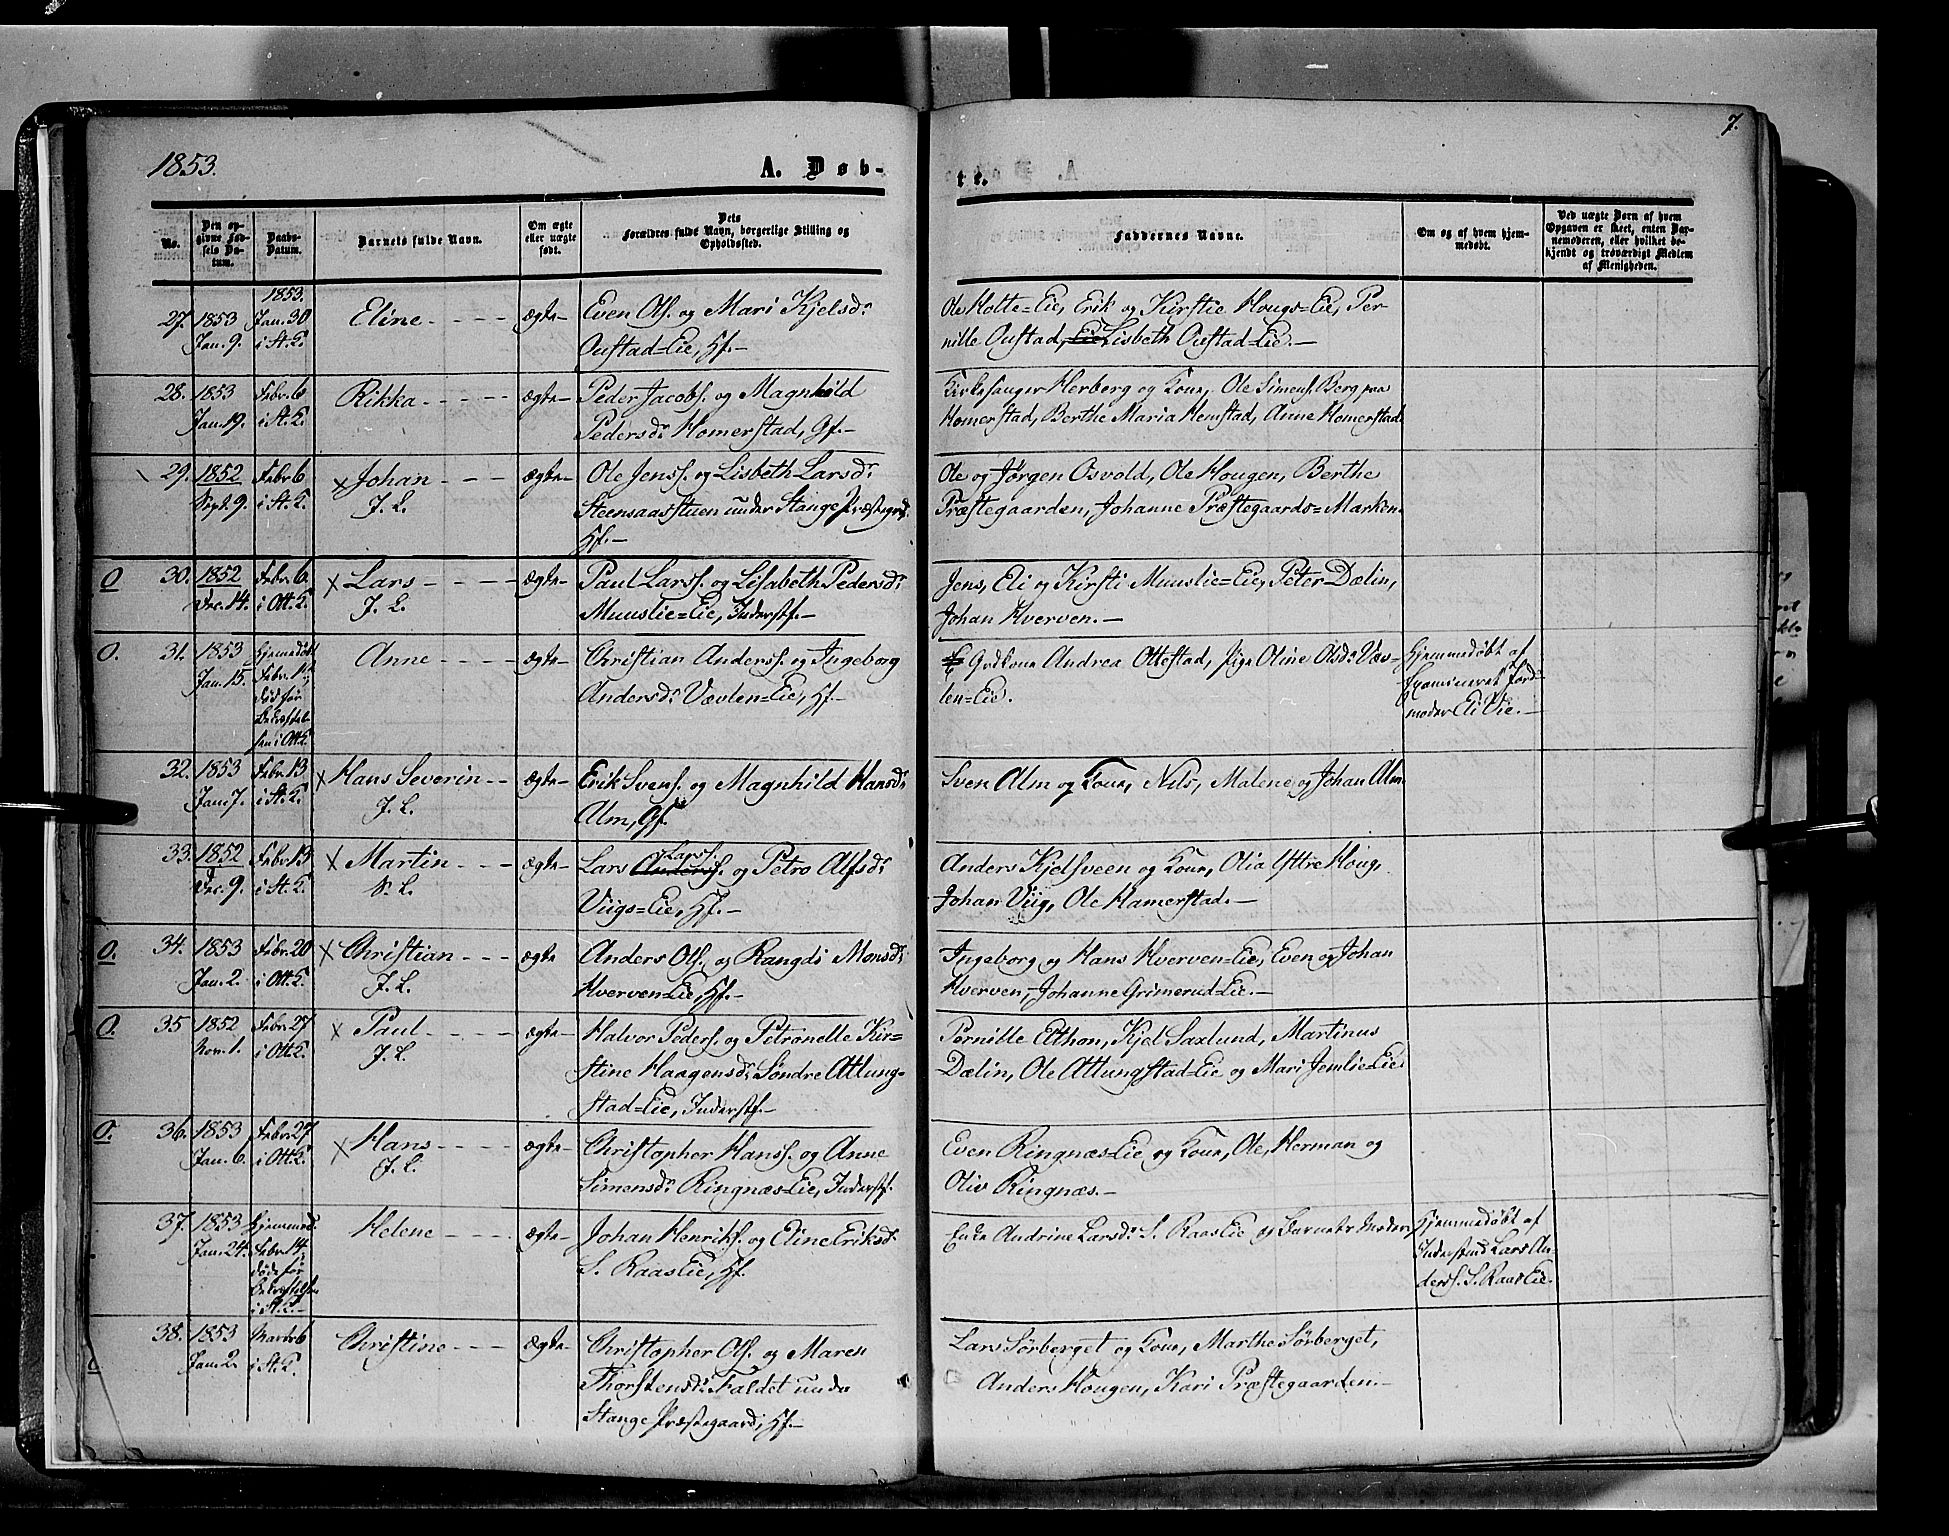 1853.
A. Døb-
te.
7.
No.
Den op-
givne Fød-
sels Da-
tum.
Daabs-
Datum.
Barnets fulde Navn.
Om ægte
eller uægte
født.
Dets
Forældres fulde Navn, borgerlige Stilling og
Opholdssted.
Faddernes Navne.
Om og af hvem hjem-
medøbt.
Ved uægte Børn af hvem
Opgaven er skeet, enten Bar-
nemoderen, eller hvilket be-
kjendt og troværdigt Medlem
af Menigheden.
27. 1853 Jan. 9.
1853. Jan. 30 i St. K.
Eline
ægte
Even Ols. og Mari Kjelsd:
Oustad=Eie, Hf.
Ole Holte=Eie, Erik og Kirstie Hougs=Eie, Per-
nille Oustad, Eie Lisbeth Oustad=Eie.
28. 1853 Jan. 19.
Febr. 6 i St. K.
Rikka
ægte
Peder Jacobs. og Magnhild
Pedersd: Homerstad, Gf.
Kirkesanger Herberg og Kone, Ole Simens. Berg paa
Homerstad, Berthe Maria Hemstad, Anne Homerstad.
29. 1852 Sept. 9.
Febr. 6 i St. K.
x Johan
J. L.
ægte
Ole Jens. og Lisbeth Larsd:
Steensaasstuen under Stange Præstegrd.
Hf.
Ole og Jørgen Osvold, Ole Hougen, Berthe
Præstegaarden, Johanne Præstegaards=Marken.
O 30. 1852 Dec. 14.
Febr. 6. i Ott. K.
x Lars
J. L.
ægte
Paul Lars. og Lisabeth Pedersd:
Muuslie=Eie, Inderstf.
Jens, Eli og Kirsti Muuslie=Eie, Peter Dælin,
Johan Hverven.
O. 31. 1853 Jan. 15.
Hjemmedøbt
Febr. 14;
død før
Bekræftel-
sen i Ott. K.
Anne
ægte
Christian Anders. og Ingeborg
Andersd: Vævlen=Eie, Hf.
Grdkone Andrea Ottestad, Pige Oline Olsd: Væv-
len=Eie.
Hjemmedøbt af
Examineret Jord-
moder Eli Vie.
32. 1853 Jan. 7.
Febr. 13 i St. K.
x Hans Severin
J. L.
ægte
Erik Svens. og Magnhild Hansd:
Alm, Gf.
Sven Alm og Kone, Nils, Malene og Johan Alm.
33. 1852 Dec. 9.
Febr. 13 i St. K.
x Martin
S. L.
ægte
Lars Anders. Lars. og Petro Alfsd:
Viigs=Eie, Hf.
Anders Kjelsveen og Kone, Olia Yttre Houg,
Johan Viig, Ole Hamerstad.
O. 34. 1853 Jan. 2.
Febr. 20 i Ott. K.
x Christian
J. L.
ægte
Anders Ols. og Rangdi Monsd:
Hverven=Eie, Hf.
Ingeborg og Hans Hverven=Eie, Even og Johan
Hverven, Johanne Grimerud=Eie.
O. 35 1852 Nov. 1.
Febr. 27 i Ott. K.
x Paul
J. L.
ægte
Halvor Peders. og Petronelle Kir-
stine Haagensd: Søndre Atlung-
stad=Eie, Inderstf.
Pernille Elthon, Kjel Saxlund, Martinus
Dælin, Ole Atlungstad=Eie og Mari Jemlie=Eie.
O. 36. 1853 Jan. 6.
Febr. 27 i Ott. K.
x Hans
J. L.
ægte
Christopher Hans. og Anne
Simensd: Ringnæs=Eie, Inderstf.
Even Ringnæs=Eie og Kone, Ole, Herman og
Oliv Ringnæs.
37. 1853 Jan. 24.
Hjemmed.
Febr. 14.
døde før
Bekræftelsen
i St. K.
Helene
ægte
Johan Henriks. og Eline Eriksd:
S. Raas Eie, Hf.
Enke Andrine Larsd: S. Raas Eie og Barnets Moder.
Hjemmedøbt af
Inderstmd Lars An-
ders. S. Raas Eie.
38. 1853 Jan. 2.
Marts 6 i St. K.
Christine
ægte
Christopher Ols. og Maren
Thorstensd: Faldet under
Stange Præstegaard, Hf.
Lars Sørberget og Kone, Marthe Sørberget,
Anders Hougen, Kari Præstegaarden.